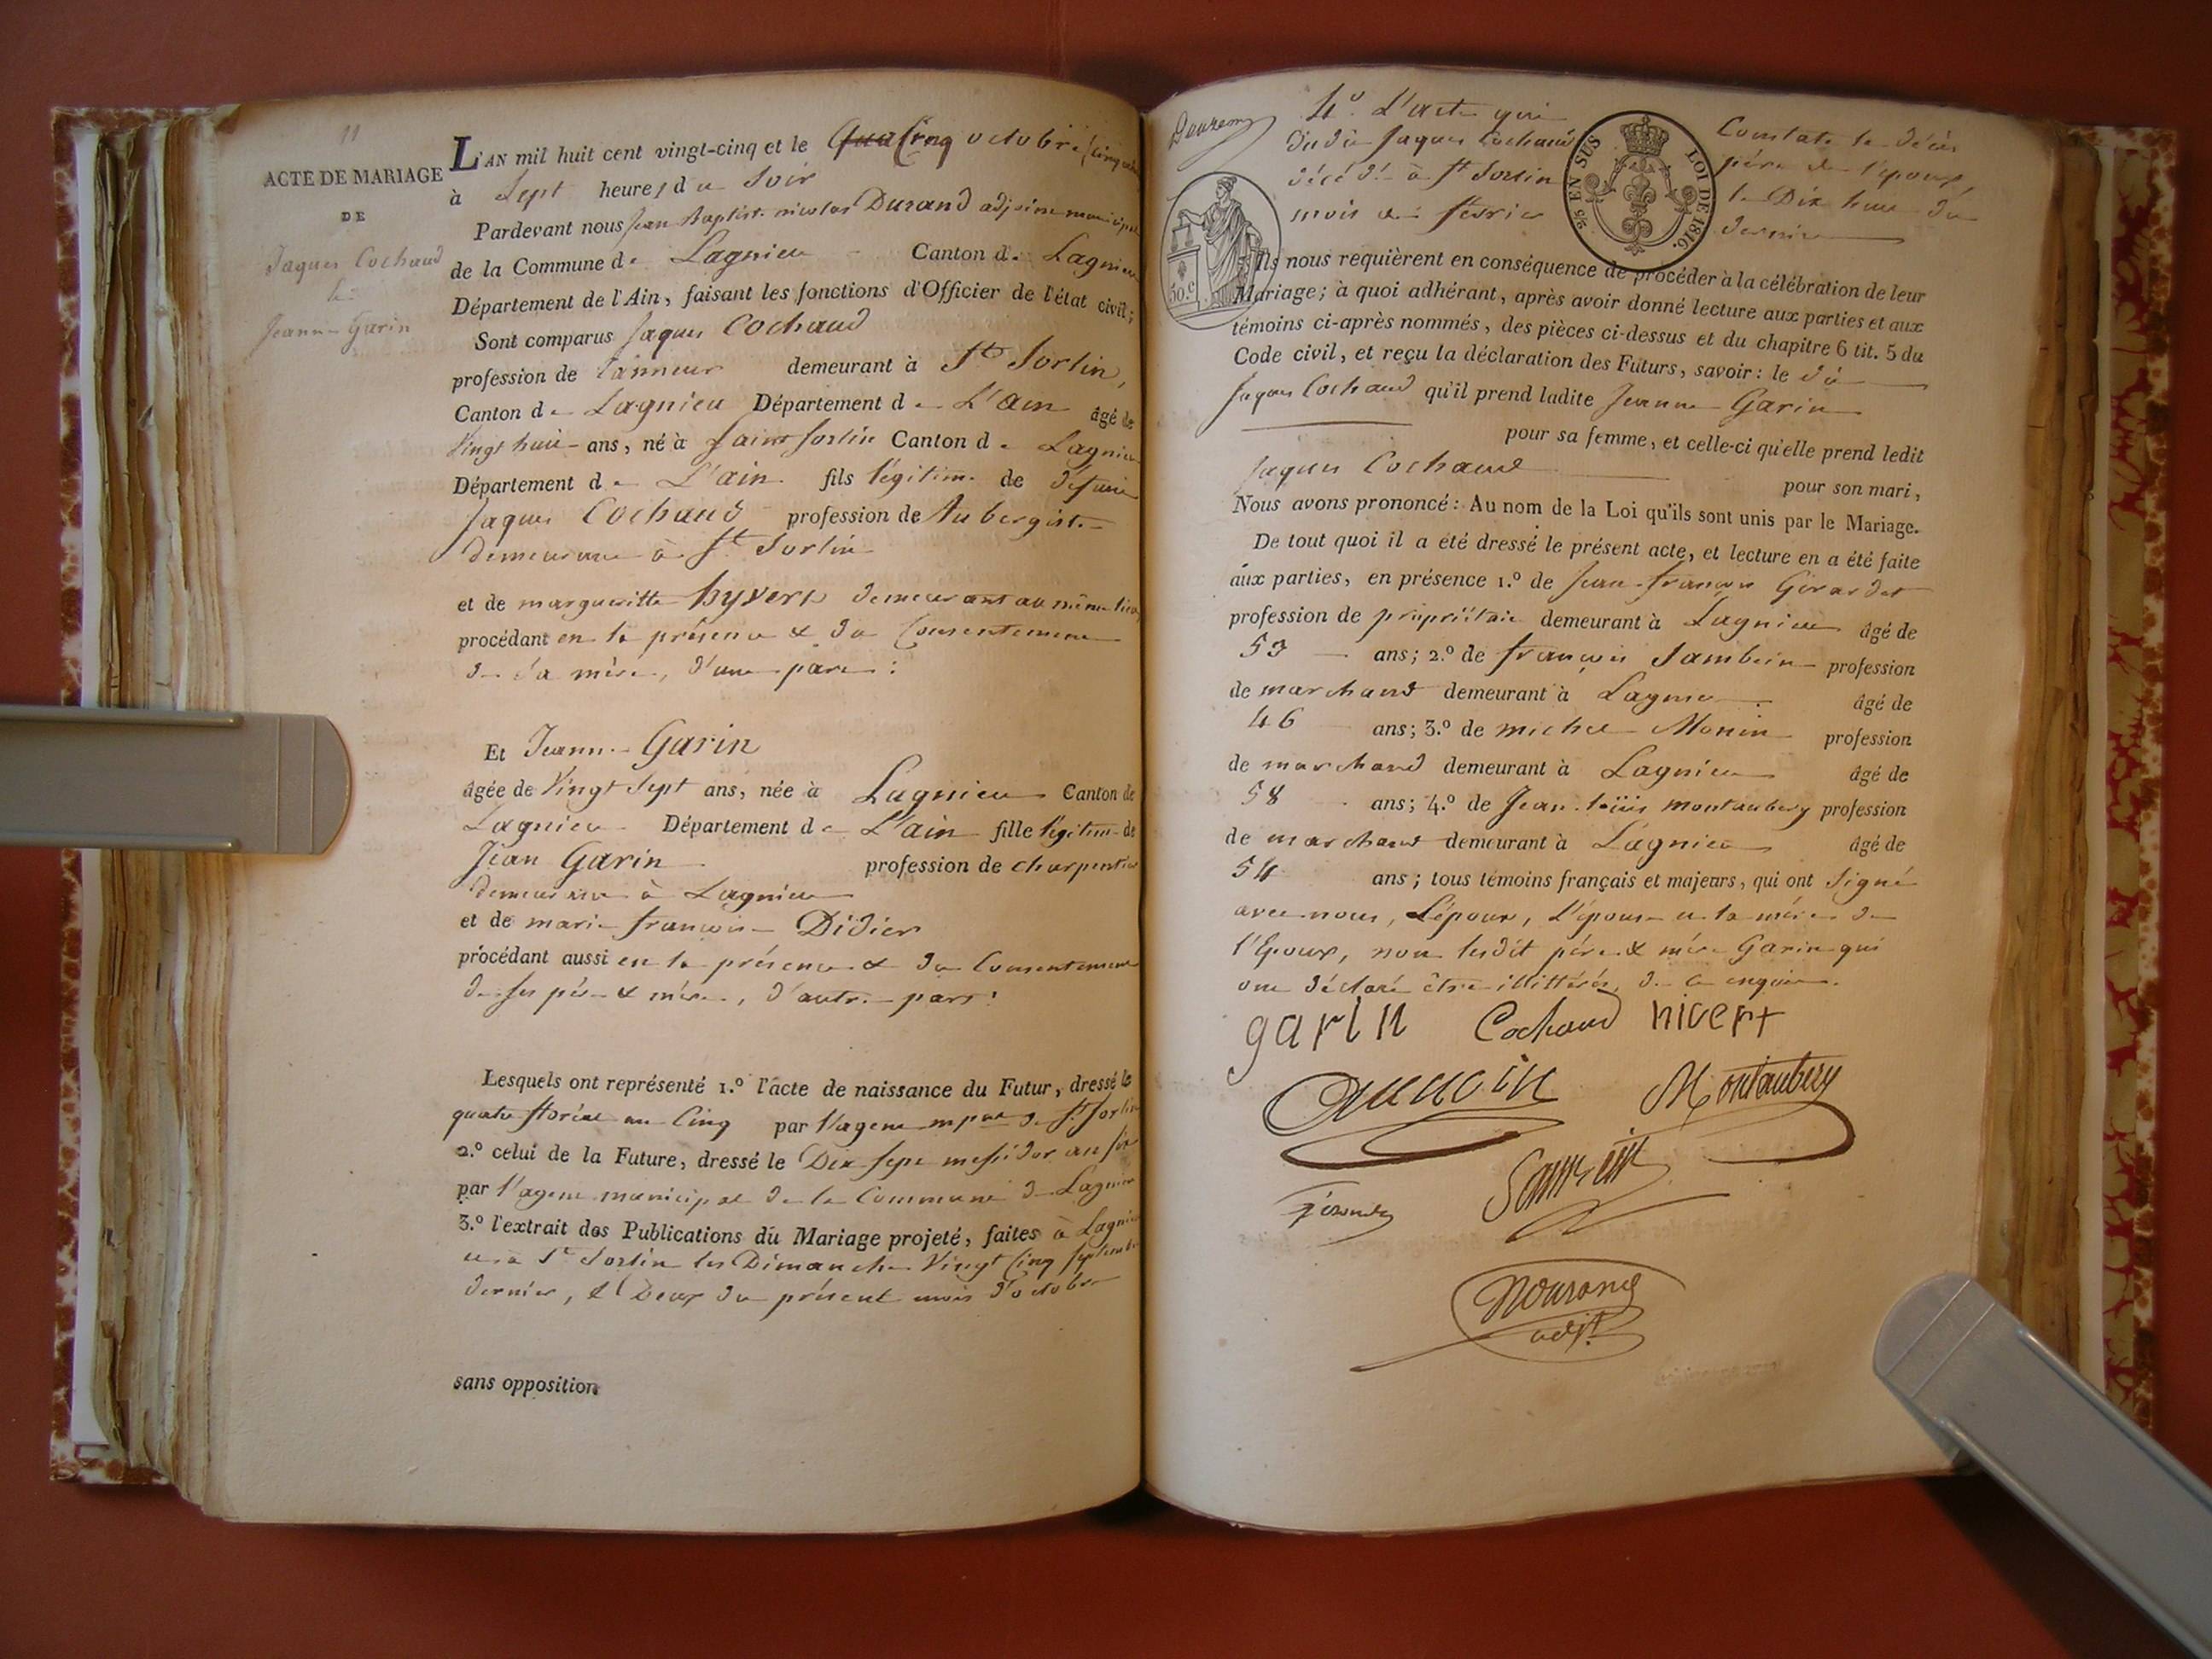 11
ACTE DE MARIAGE
DE
Jaques Cochaud
&
Jeanne Garin
L'AN mil huit cent vingt-cinq et le Qua Cinq octobre
à Sept heures du Soir
Pardevant nous Jean Baptiste nicolas Durand adjoint municipal
de la Commune de Lagnieu Canton de Lagnieu
Département de l'Ain, faisant les fonctions d'Officier de l'état civil;
Sont comparus Jaques Cochaud
profession de tanneur demeurant à St Sorlin,
Canton de Lagnieu Département de L'ain âgé de
Vingt huit ans, né à Saint Sorlin Canton de Lagnieu
Département de L'ain fils légitime de défunt
Jaques Cochaud profession de Aubergiste
demeurant à St Sorlin
et de margueritte hyvert demeurant au même lieu,
procédant en la présence & du Consentement
de sa mère, d'une part:
Et Jeanne Garin
âgée de Vingt Sept ans, née à Lagnieu Canton de
Lagnieu Département de L'ain fille légitime de
Jean Garin profession de charpentier
demeurant à Lagnieu
et de marie françoise Didier
procédant aussi en la présence & du Consentement
de ses père & mère, d'autre part:
Lesquels ont représenté 1.º l'acte de naissance du Futur, dressé le
quatre floréal an Cinq par l'agent mpal de St Sorlin
2.º celui de la Future, dressé le Dix sept messidor an six
par l'agent municipal de la Commune de Lagnieu
3.º l'extrait des Publications du Mariage projeté, faites à Lagnieu
et à St Sorlin les Dimanches Vingt Cinq septembre
dernier, & Deux du présent mois d'octobre
sans opposition
4º L'acte qui Constate le décès
dudit Jaques Cochaud père de l'époux,
décédé à St Sorlin le Dix huit du
mois de février dernier
3/5 EN SUS LOI DE 1816.
50.c
Ils nous requièrent en conséquence de procéder à la célébration de leur
Mariage; à quoi adhérant, après avoir donné lecture aux parties et aux
témoins ci-après nommés, des pièces ci-dessus et du chapitre 6 tit. 5 du
Code civil, et reçu la déclaration des Futurs, savoir: le dit
Jaques Cochaud qu'il prend ladite Jeanne Garin
pour sa femme, et celle-ci qu'elle prend ledit
Jaques Cochaud
pour son mari,
Nous avons prononcé: Au nom de la Loi qu'ils sont unis par le Mariage.
De tout quoi il a été dressé le présent acte, et lecture en a été faite
aux parties, en présence 1.º de Jean-françois Girardet
profession de propriétaire demeurant à Lagnieu âgé de
53 ans; 2.º de françois Sambin profession
de marchand demeurant à Lagnieu âgé de
46 ans; 3.º de michel Monin profession
de marchand demeurant à Lagnieu âgé de
58 ans; 4.º de Jean-loüis montaubery profession
de marchand demeurant à Lagnieu âgé de
54 ans; tous témoins français et majeurs, qui ont Signé
avec nous, L'époux, L'épouse et la mère de
l'Epoux, non lesdit père & mère Garin qui
ont déclaré être illittérés, de ce enquis.
garin Cochaud hivert
Montaubery
adjt